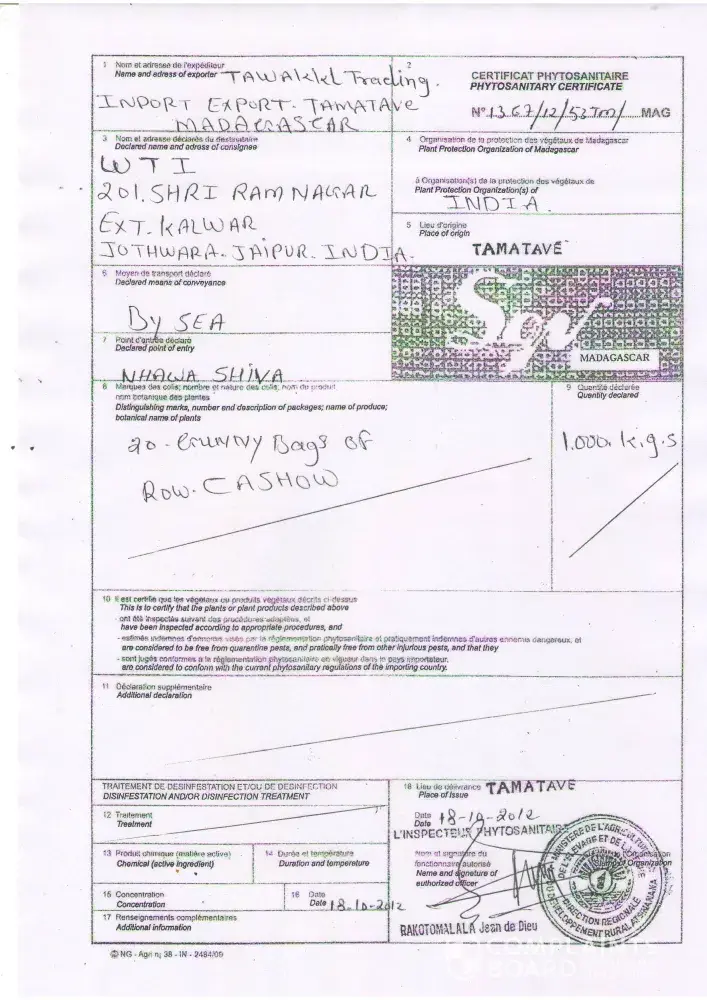 1 Nom et adresse de l'expéditeur
Name and adress of exporter TAWAKKL Trading.
INPORT EXPORT. TAMATAVE
MADAGASCAR
2
CERTIFICAT PHYTOSANITAIRE
PHYTOSANITARY CERTIFICATE
N° 1367/12/53Tm/ MAG
3 Nom et adresse déclarés du destinataire
Declared name and adress of consignee
WTI
201. SHRI RAM NAGAR
EXT. KALWAR
JOTHWARA. JAIPUR. INDIA.
4 Organisation de la protection des végétaux de Madagascar
Plant Protection Organization of Madagascar
à Organisation(s) de la protection des végétaux de
Plant Protection Organization(s) of
INDIA.
5 Lieu d'origine
Place of origin
TAMATAVE
6 Moyen de transport déclaré
Declared means of conveyance
By SEA
7 Point d'entrée déclaré
Declared point of entry
NHAWA SHIVA
Spgf
MADAGASCAR
8 Marques des colis; nombre et nature des colis; nom du produit
nom botanique des plantes
Distinguishing marks, number end description of packages; name of produce;
botanical name of plants
20 - GUNNY Bags of
ROW. CASHOW
9 Quantité déclarée
Quentity declared
1.000. k.g.s
10 Il est certifié que les végétaux ou produits végétaux décrits ci-dessus
This is to certify that the plants or plant products described above
- ont été inspectés suivant des procédures adaptées, et
have been inspected according to appropriate procedures, and
- estimés indemnes d'ennemis visés par la réglementation phytosanitaire et pratiquement indemnes d'autres ennemis dangereux, et
are considered to be free from quarantine pests, and pratically free from other injurious pests, and that they
- sont jugés conformes à la réglementation phytosanitaire en vigueur dans le pays importateur.
are considered to conform with the current phytosanitary regulations of the importing country.
11 Déclaration supplémentaire
Additional declaration
TRAITEMENT DE DESINFESTATION ET/OU DE DESINFECTION
DISINFESTATION AND/OR DISINFECTION TREATMENT
12 Traitement
Treatment
13 Produit chimique (matière active)
Chemical (active ingredient)
14 Durée et température
Duration and temperature
15 Concentration
Concentration
16 Date
Date 18-10-2012
17 Renseignements complémentaires
Additional information
18 Lieu de délivrance TAMATAVE
Place of Issue
Date
Date 18-10-2012
L'INSPECTEUR PHYTOSANITAIRE
Nom et signature du
fonctionnaire autorisé
Name and signature of
authorized officer
Organisation
of Organization
MINISTERE DE L'AGRICULTURE
DE L'ELEVAGE ET DE LA
DIRECTION REGIONALE
DEVELOPPEMENT RURAL ATSINANANA
RAKOTOMALALA Jean de Dieu
© NG - Agri n; 38 - IN - 2484/09
COMPLAINTS
BOARD